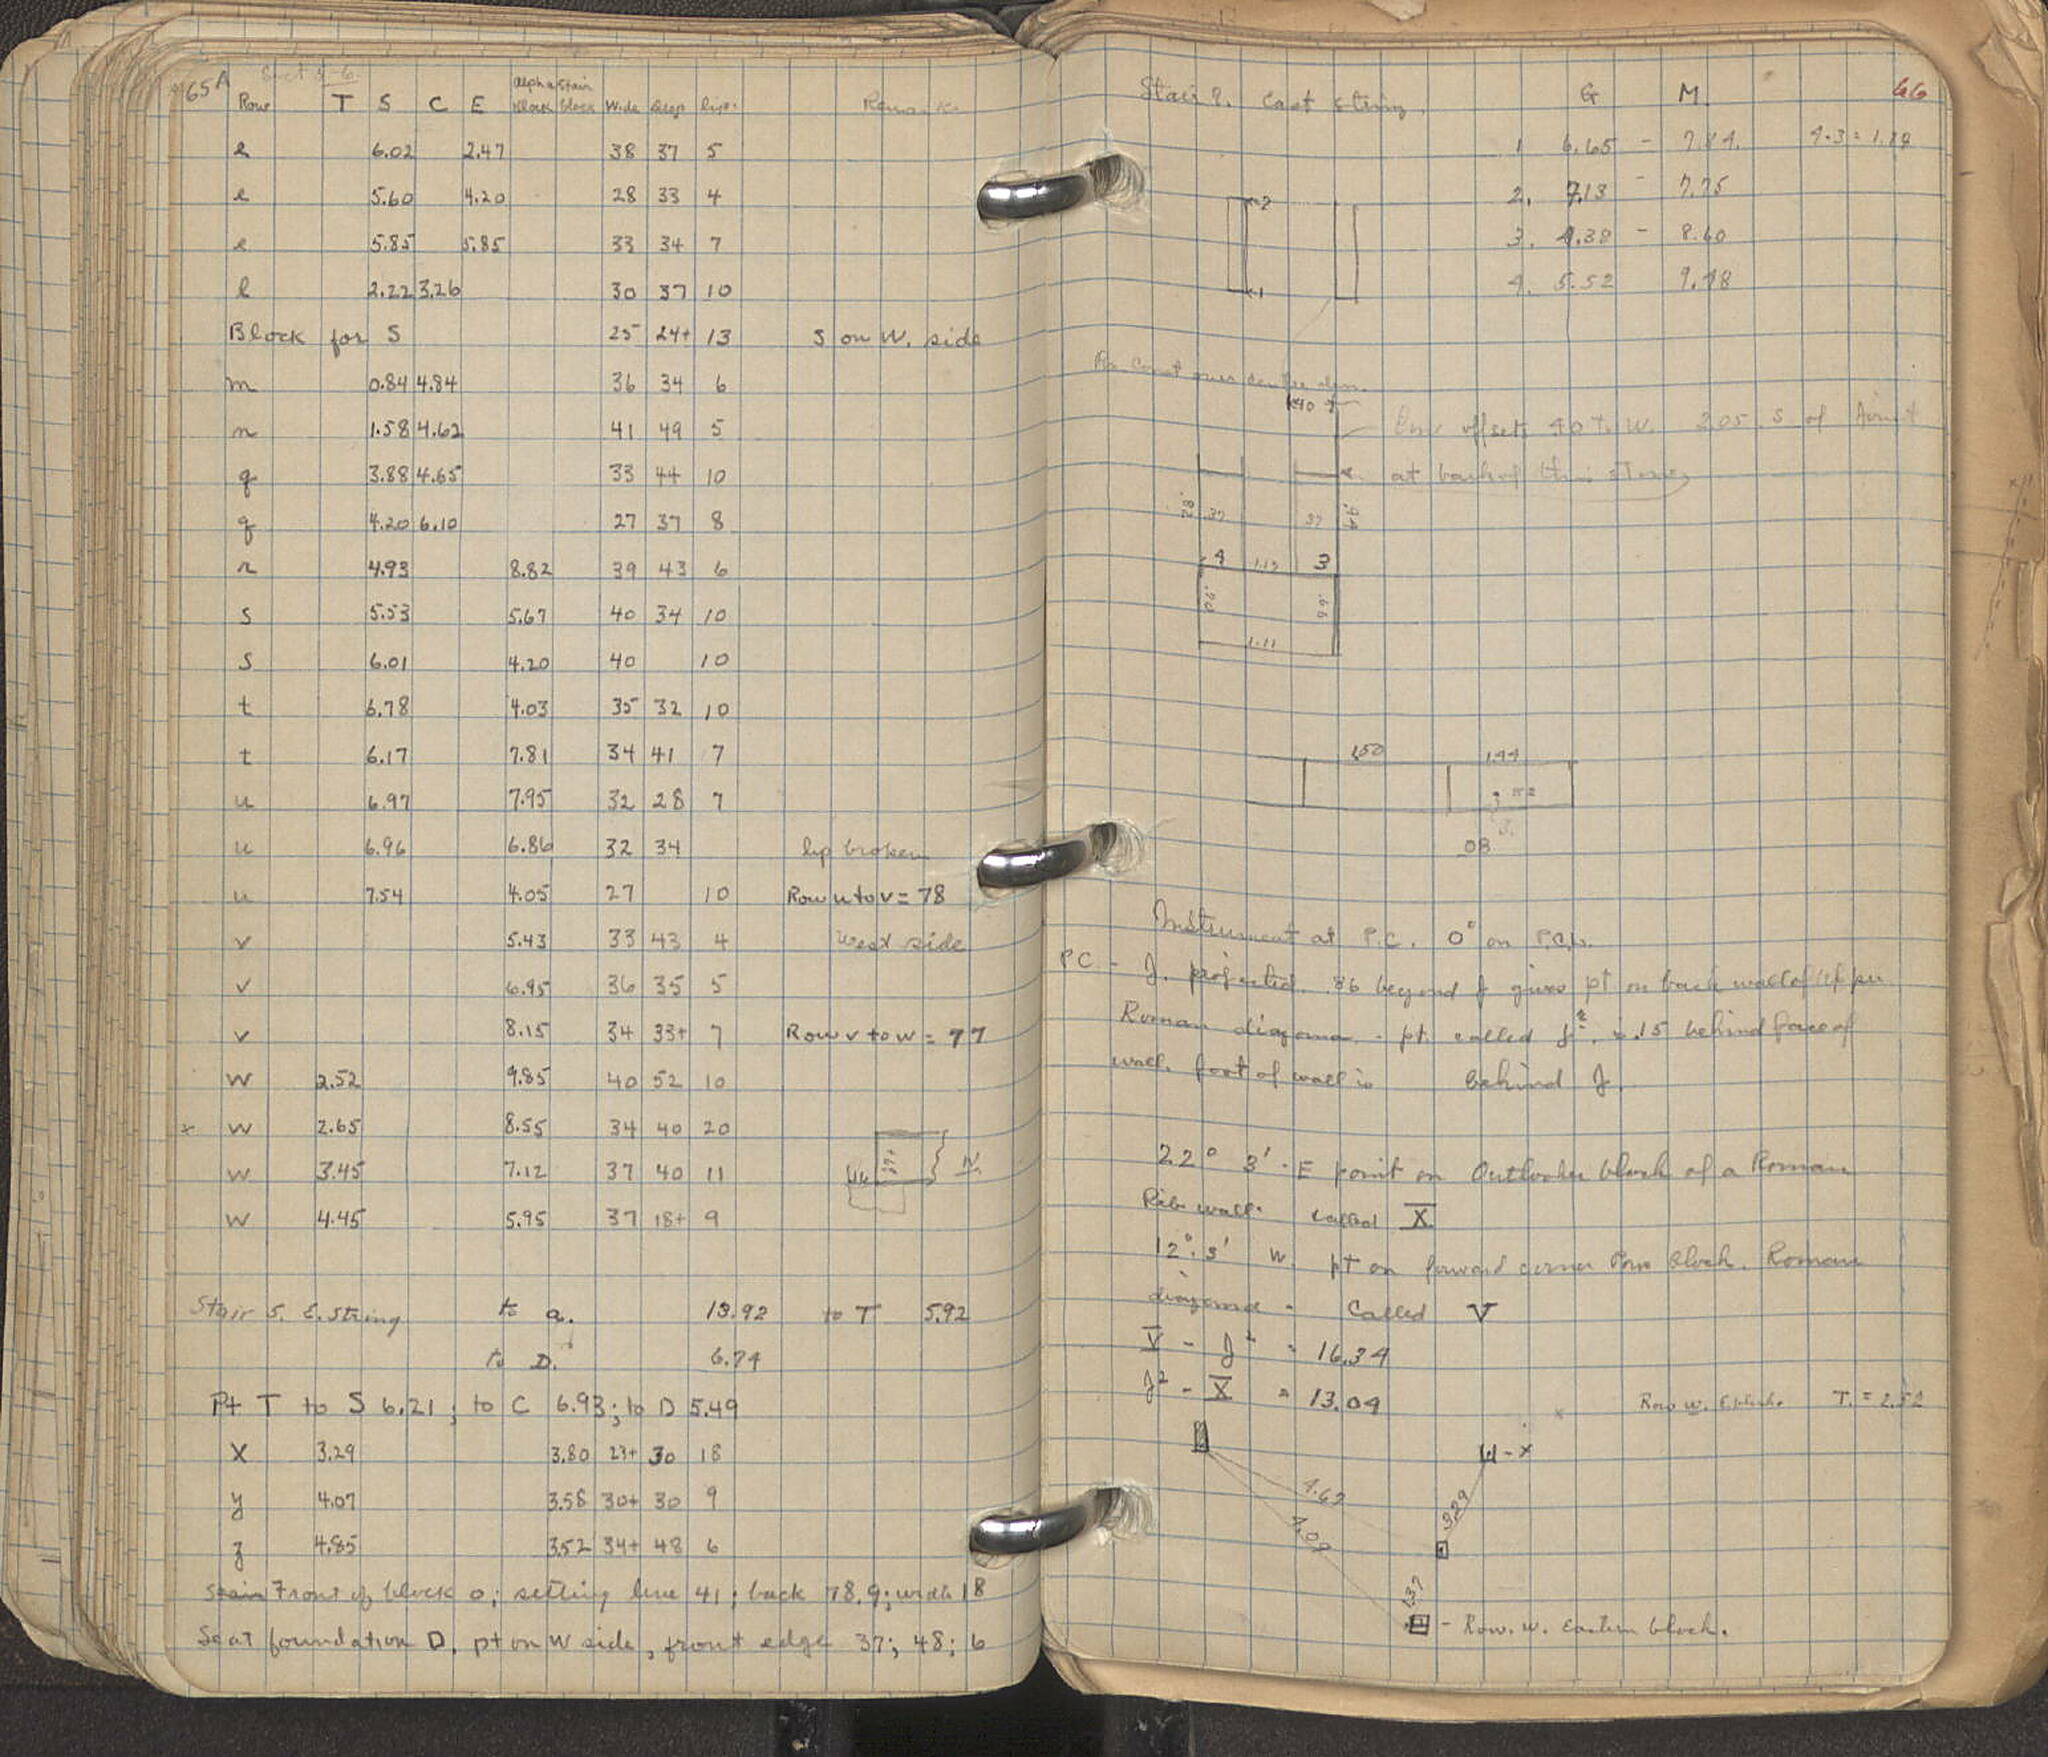 65A Sect 5-6
Row T S C E alpha block stain block Wide deep lip Remarks
e 6.02 2.47 38 37 5
e 5.60 4.20 28 33 4
e 5.85 5.85 33 34 7
l 2.22 3.26 30 37 10
Block for S 25 24+ 13 S on W. side
m 0.84 4.84 36 34 6
n 1.58 4.62 41 49 5
q 3.88 4.65 33 44 10
q 4.20 6.10 27 37 8
r 4.93 8.82 39 43 6
s 5.53 5.67 40 34 10
s 6.01 4.20 40 10
t 6.78 4.03 35 32 10
t 6.17 7.81 34 41 7
u 6.97 7.95 32 28 7
u 6.96 6.86 32 34 lip broken
u 7.54 4.05 27 10 Row u to v = 78
v 5.43 33 43 4 West side
v 6.95 36 35 5
v 8.15 34 33+ 7 Row v to w = 77
w 2.52 9.85 40 52 10
x w 2.65 8.55 34 40 20
w 3.45 7.12 37 40 11
w 4.45 5.95 37 18+ 9
N
Stair 5. E. String to a. 13.92 to T 5.92
to D. 6.74
Pt T to S 6.21; to C 6.93; to D 5.49
X 3.29 3.80 23+ 30 18
y 4.07 3.58 30+ 30 9
z 4.85 3.52 34+ 48 6
Front of block 0; setting line 41; back 78.9; width 18
Seat foundation D, pt on W side, front edge 37; 48; 6
66
Stair 9. East string. G M.
1 6.65 - 7.84. 4-3 = 1.84
2. 7.13 - 7.75
3. 4.38 - 8.60
4. 5.52 9.48
2
1
40
offset 40 to W. 2.05 S. of
at back of this stone
.82 .37 37 .94
4 1.12 3
.70 .66
1.11
1.50 1.44
.52
3.
.08
Instrument at P.C. 0° on P.C.L.
P.C - J. projected .86 beyond J gives pt on back wall of
Roman diazoma - pt. called J². .15 behind face of
wall. foot of wall is behind J.
22° 3' E point on block of a Roman
Rib wall. called X
12°. 3' W. pt on forward corner block. Roman
diazoma - Called V
V - J² = 16.34
J² - X = 13.04
Row w. E block. T. = 2.52
W - x
4.67
3.29
4.09
1.37
- Row. w. Eastern block.